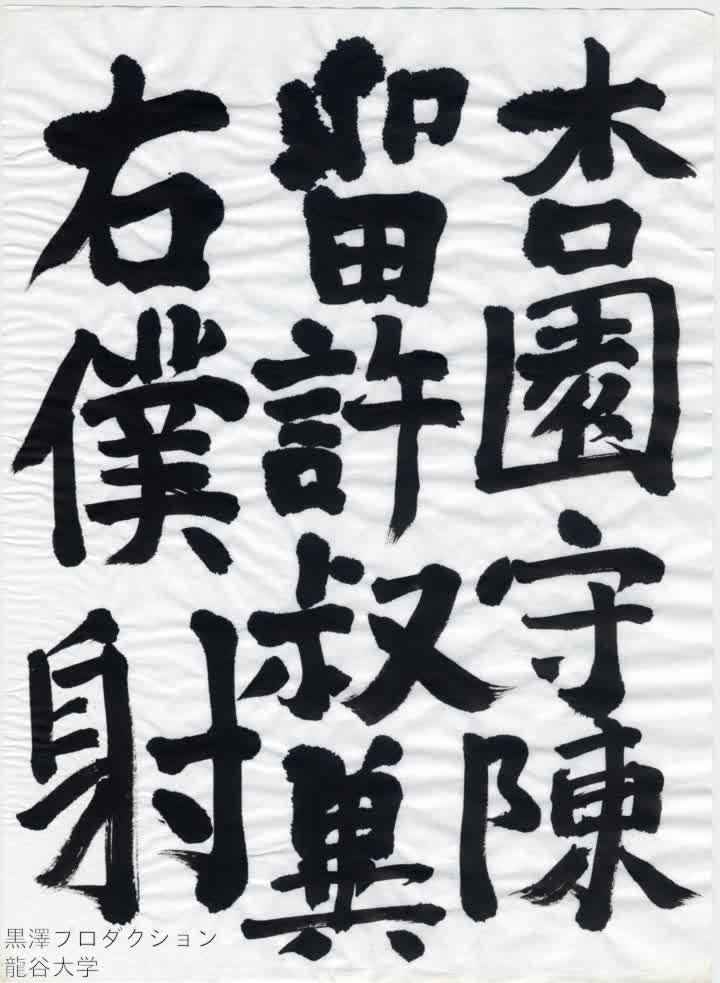 杏園守陳
留許叔冀
右僕射
黒澤プロダクション
龍谷大学